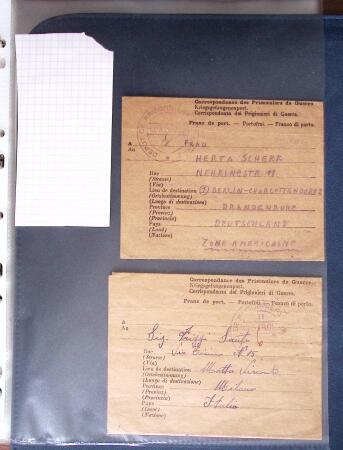 Correspondance des Prisonniers de Guerre.
Kriegsgefangenenpost.
Corrispondenza dei Prigionieri di Guerra.
Franc de port. — Portofrei. — Franco di porto.
A
An
FRAU
HERTA SCHERF
Rue NEHRINGSTR 11
(Strasse)
(Via)
Lieu de destination (1) BERLIN-CHARLOTTENBURG 2
(Bestimmung)
(Luogo di destinazione)
Province BRANDENBURG
(Provinz)
(Provincia)
Pays DEUTSCHLAND
(Land)
(Nazione)
ZONE AMERICAINE
Correspondance des Prisonniers de Guerre.
Kriegsgefangenenpost.
Corrispondenza dei Prigionieri di Guerra.
Franc de port. — Portofrei. — Franco di porto.
A
An
Sig.
Rue Via N° 15
(Strasse)
(Via)
Lieu de destination Motta Visconti
(Luogo di destinazione)
Province Milano
(Provinz)
(Provincia)
Pays Italia
(Land)
(Nazione)